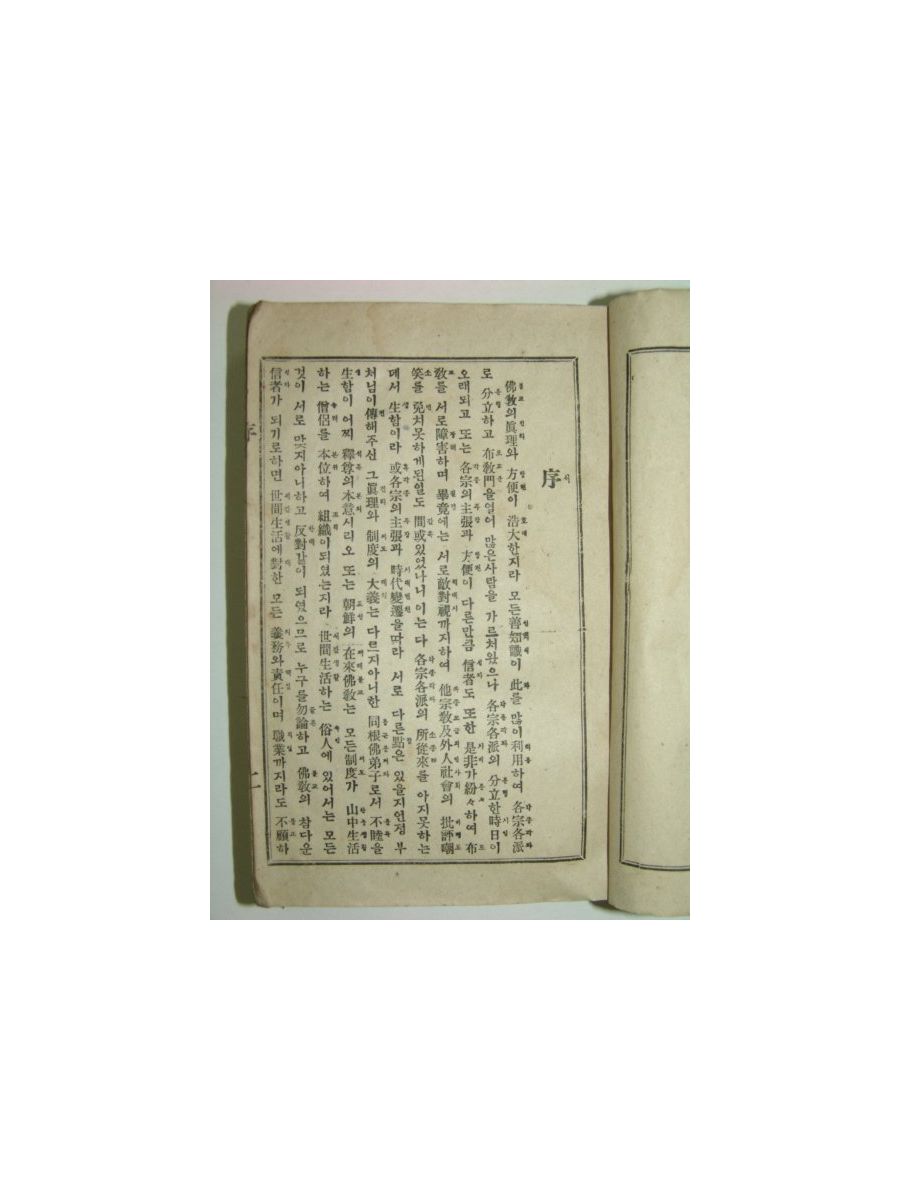 序
佛敎의眞理와 方便이 浩大한지라 모든善知識이 此를 많이利用하여 各宗各派
로 分立하고 布敎門을열어 많은사람을 가르처왔으나 各宗各派의 分立한時日이
오래되고 또는 各宗의主張과 方便이 다른만큼 信者도 또한 是非가紛々하여 布
敎를 서로障害하며 畢竟에는 서로敵對視까지하여 他宗敎及外人社會의 批評嘲
笑를 免치못하게된일도 間或있었나니이는다 各宗各派의 所從來를 아지못하는
데서 生함이라 或各宗의主張과 時代變遷을따라 서로 다른點은 있을지언정 부
처님이傳해주신 그眞理와 制度의 大義는 다르지아니한 同根佛弟子로서 不睦을
生함이어찌 釋尊의本意시리오 또는 朝鮮의 在來佛敎는 모든制度가 山中生活
하는 僧侶를 本位하여 組織이되였는지라 世間生活하는 俗人에 있어서는 모든
것이 서로 맞지아니하고 反對같이 되였으므로 누구를勿論하고 佛敎의 참다운
信者가 되기로하면 世間生活에對한 모든 義務와責任이며 職業까지라도 不顧하
序